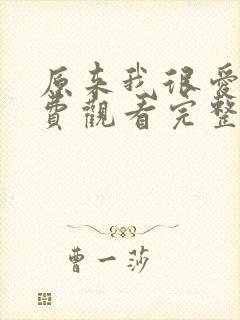 原来我很爱
費觀看完整
曹一莎